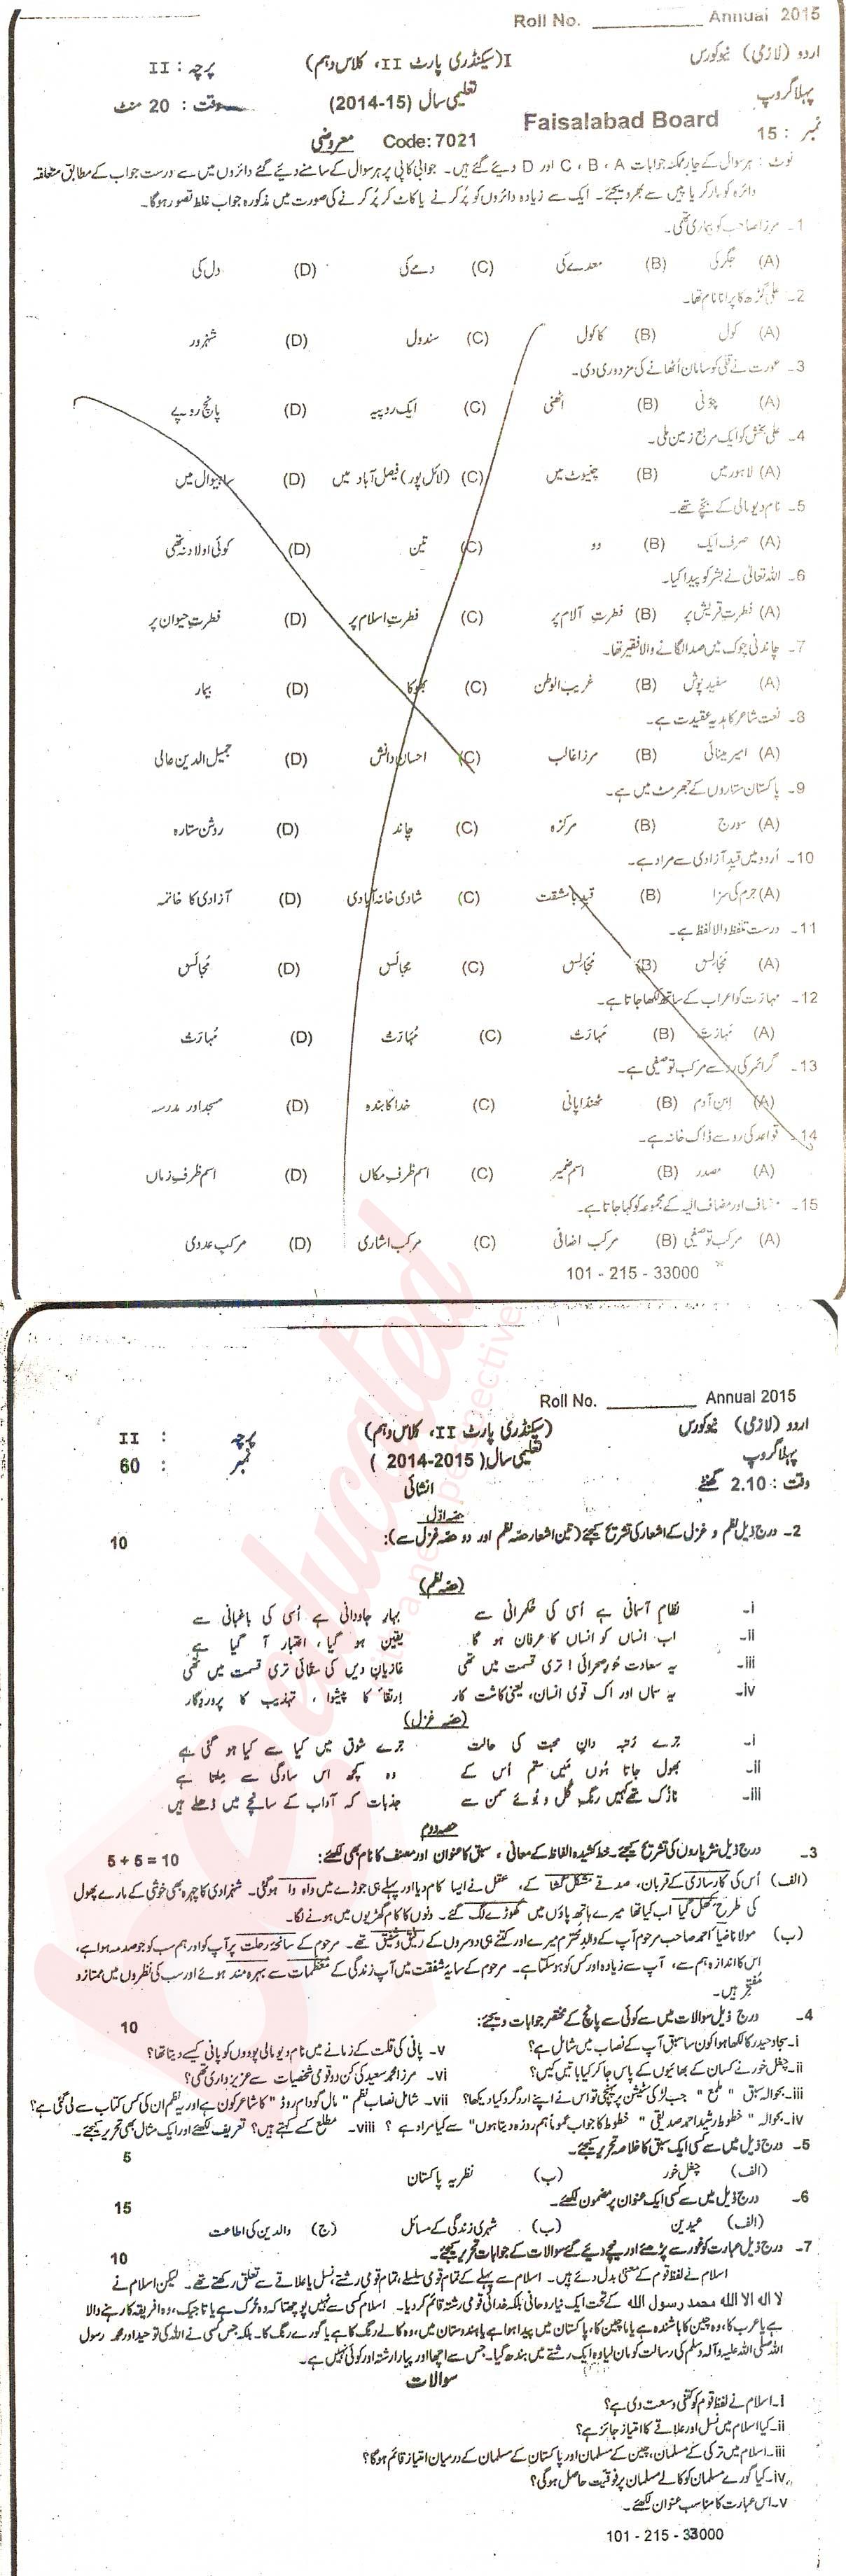 Roll No. ____________ Annual 2015
اردو (لازمی) نیو کورس I(سیکنڈری پارٹ II، کلاس دہم) پرچہ : II
پہلا گروپ تعلیمی سال (2014-15) وقت : 20 منٹ
نمبر : 15 Faisalabad Board Code: 7021 معروضی
نوٹ : ہر سوال کے چار ممکنہ جوابات A ، B ، C اور D دیئے گئے ہیں۔ جوابی کاپی پر ہر سوال کے سامنے دیئے گئے دائروں میں سے درست جواب کے مطابق متعلقہ
دائرہ کو مارکر یا پین سے بھر دیجئے۔ ایک سے زیادہ دائروں کو پُر کرنے یا کاٹ کر پُر کرنے کی صورت میں مذکورہ جواب غلط تصور ہوگا۔
1۔ مرزا صاحب کو بیماری تھی۔
(A) جگر کی (B) معدے کی (C) دمے کی (D) دل کی
2۔ علی گڑھ کا پرانا نام تھا۔
(A) کول (B) کاکول (C) سندول (D) شہرور
3۔ عورت نے قلی کو سامان اُٹھانے کی مزدوری دی۔
(A) چونی (B) اٹھنی (C) ایک روپیہ (D) پانچ روپے
4۔ علی بخش کو ایک مربع زمین ملی۔
(A) لاہور میں (B) چنیوٹ میں (C) (لائل پور) فیصل آباد میں (D) ساہیوال میں
5۔ نام دیو مالی کے بچے تھے۔
(A) صرف ایک (B) دو (C) تین (D) کوئی اولاد نہ تھی
6۔ اللہ تعالیٰ نے بشر کو پیدا کیا۔
(A) فطرتِ قریش پر (B) فطرتِ آلام پر (C) فطرتِ اسلام پر (D) فطرتِ حیوان پر
7۔ چاندنی چوک میں صدا لگانے والا فقیر تھا۔
(A) سفید پوش (B) غریب الوطن (C) بھوکا (D) بیمار
8۔ نعت شاعر کا ہدیہ عقیدت ہے۔
(A) امیر مینائی (B) مرزا غالب (C) احسان دانش (D) جمیل الدین عالی
9۔ پاکستان ستاروں کے جھرمٹ میں ہے۔
(A) سورج (B) مرکزہ (C) چاند (D) روشن ستارہ
10۔ اُردو میں قیدِ آزادی سے مراد ہے۔
(A) جرم کی سزا (B) قید بامشقت (C) شادی خانہ آبادی (D) آزادی کا خاتمہ
11۔ درست تلفظ والا لفظ ہے۔
(A) (B) (C) (D)
12۔ مہارت کو اعراب کے ساتھ لکھا جاتا ہے۔
(A) (B) (C) (D)
13۔ گرائمر کی رو سے مرکب توصیفی ہے۔
(A) ابنِ آدم (B) ٹھنڈا پانی (C) خدا کا بندہ (D) مسجد اور مدرسہ
14۔ قواعد کی رو سے ڈاک خانہ ہے۔
(A) مصدر (B) اسم ضمیر (C) اسم ظرفِ مکاں (D) اسم ظرفِ زماں
15۔ مضاف اور مضاف الیہ کے مجموعہ کو کہا جاتا ہے۔
(A) مرکب توصیفی (B) مرکب اضافی (C) مرکب اشاری (D) مرکب عددی
101 - 215 - 33000
Roll No. __________ Annual 2015
اردو (لازمی) نیو کورس (سیکنڈری پارٹ II، کلاس دہم) پرچہ : II
پہلا گروپ تعلیمی سال (2014-2015) نمبر : 60
وقت : 2.10 گھنٹے انشائی
حصہ اوّل
2۔ درج ذیل نظم و غزل کے اشعار کی تشریح کیجئے (تین اشعار حصہ نظم اور دو حصہ غزل سے): 10
(حصہ نظم)
i۔ نظامِ آسمانی ہے اُسی کی حکمرانی سے بہارِ جاودانی ہے اُسی کی باغبانی سے
ii۔ اب انساں کو انساں کا عرفان ہو گا یقین ہو گیا، اعتبار آ گیا ہے
iii۔ یہ سعادت حُورِ صحرائی! تری قسمت میں تھی غازیانِ دیں کی سقّائی تری قسمت میں تھی
iv۔ یہ سماں اور اک قوی انسان، یعنی کاشت کار ارتقاء کا پیشوا ، تہذیب کا پروردگار
(حصہ غزل)
i۔ ترے رُتبہ دانِ محبت کی حالت ترے شوق میں کیا سے کیا ہو گئی ہے
ii۔ بھول جاتا ہُوں مَیں ستم اُس کے وہ کچھ اس سادگی سے ملتا ہے
iii۔ نازک تھے کہیں رنگِ گل و بُوئے سمن سے جذبات کہ آداب کے سانچے میں ڈھلے ہیں
حصہ دوم
3۔ درج ذیل نثر پاروں کی تشریح کیجئے۔ خط کشیدہ الفاظ کے معانی ، سبق کا عنوان اور مصنف کا نام بھی لکھئے: 5 + 5 = 10
(الف) اُس کی کارسازی کے قربان، صدقے مشکل کشا کے، عقل نے ایسا کام دیا اور پہلے ہی جوڑے میں واہ وا ہوگئی۔ شہزادی کا چہرہ بھی خوشی کے مارے پھول
کی طرح کِھل گیا اب کیا تھا میرے ہاتھ پاؤں میں گھوڑے لگ گئے۔ دنوں کا کام گھڑیوں میں ہونے لگا۔
(ب) مولانا ضیا احمد صاحب مرحوم آپ کے والدِ محترم میرے اور کتنے ہی دوسروں کے رفیق و شفیق تھے۔ مرحوم کے سانحۂ رحلت پر آپ کو اور ہم سب کو جو صدمہ ہوا ہے،
اس کا اندازہ ہم سے، آپ سے زیادہ اور کس کو ہوسکتا ہے۔ مرحوم کے سایۂ شفقت میں آپ زندگی کے مُغتنمات سے بہرہ مند ہوئے اور سب کی نظروں میں ممتاز و
مُفتخر ہیں۔
4۔ درج ذیل سوالات میں سے کوئی سے پانچ کے مختصر جوابات دیجئے: 10
i۔ سجاد حیدر کا لکھا ہوا کون سا سبق آپ کے نصاب میں شامل ہے؟ v۔ پانی کی قلت کے زمانے میں نام دیو مالی پودوں کو پانی کیسے دیتا تھا؟
ii۔ چغل خور نے کسان کے بھائیوں کے پاس جا کر کیا باتیں کیں؟ vi۔ مرزا محمد سعید کی کن دو قومی شخصیات سے عزیز داری تھی؟
iii۔ بحوالہ سبق "ملمع" جب لڑکی سٹیشن پر پہنچی تو اس نے اپنے ارد گرد کیا دیکھا؟ vii۔ شامل نصاب نظم "مال گودام روڈ" کا شاعر کون ہے اور یہ نظم ان کی کس کتاب سے لی گئی ہے؟
iv۔ بحوالہ "خطوط رشید احمد صدیقی" "خطوط کا جواب عموماً ہم روزہ دیتا ہوں" سے کیا مراد ہے؟ viii۔ مطلع کسے کہتے ہیں؟ تعریف لکھئے اور ایک مثال بھی تحریر کیجئے۔
5۔ درج ذیل میں سے کسی ایک سبق کا خلاصہ تحریر کیجئے۔ 5
(الف) چغل خور (ب) نظریہ پاکستان
6۔ درج ذیل میں سے کسی ایک عنوان پر مضمون لکھئے۔ 15
(الف) عیدین (ب) شہری زندگی کے مسائل (ج) والدین کی اطاعت
7۔ درج ذیل عبارت کو غور سے پڑھئے اور نیچے دیئے گئے سوالات کے جوابات تحریر کیجئے۔ 10
اسلام نے لفظ قوم کے معنی بدل دئے ہیں۔ اسلام سے پہلے کے تمام قومی سلسلے، تمام قومی رشتے، نسل یا علاقے سے تعلق رکھتے تھے۔ لیکن اسلام نے
لا اله الا الله محمد رسول الله کے تحت ایک نیا روحانی بلکہ خدائی قومی رشتہ قائم کر دیا۔ اسلام کسی سے نہیں پوچھتا کہ وہ ترک ہے یا تاجیک، وہ افریقہ کا رہنے والا
ہے یا عرب کا، وہ چین کا باشندہ ہے یا ماچین کا، پاکستان میں پیدا ہوا ہے یا ہندوستان میں، وہ کالے رنگ کا ہے یا گورے رنگ کا۔ بلکہ جس کسی نے اللہ کی توحید اور محمد رسول
اللہ صلی اللہ علیہ وآلہ وسلم کی رسالت کو مان لیا وہ ایک رشتے میں بندھ گیا۔ جس سے اچھا اور پیارا رشتہ اور کوئی نہیں ہے۔
سوالات
i۔ اسلام نے لفظ قوم کو کتنی وسعت دی ہے؟
ii۔ کیا اسلام میں نسل اور علاقے کا امتیاز جائز ہے؟
iii۔ اسلام میں ترکی کے مسلمان، چین کے مسلمان اور پاکستان کے مسلمان کے درمیان امتیاز قائم ہوگا؟
iv۔ کیا گورے مسلمان کو کالے مسلمان پر فوقیت حاصل ہوگی؟
v۔ اس عبارت کا مناسب عنوان لکھئے۔
101 - 215 - 33000
educated
with a new perspective